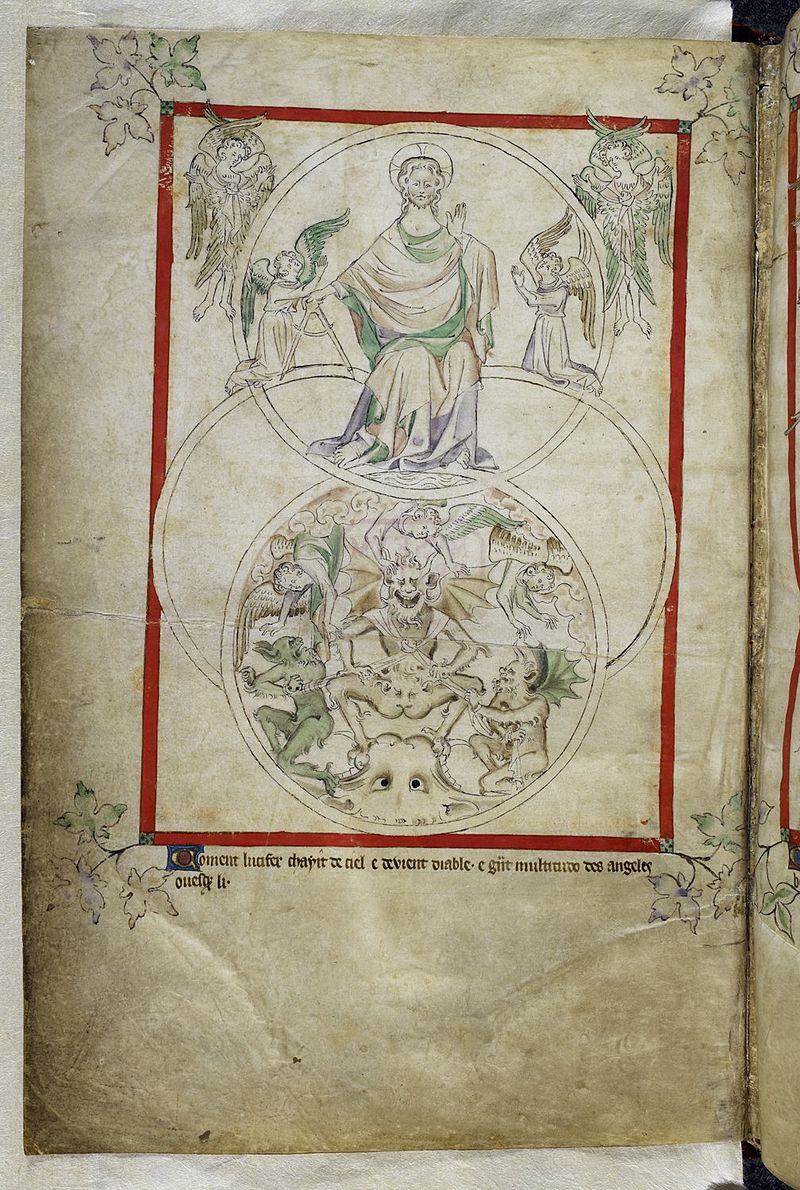 Coment lucifer chayit de ciel e devient diable · e g͛nt multitudo des angeles
ovesq̨ li·